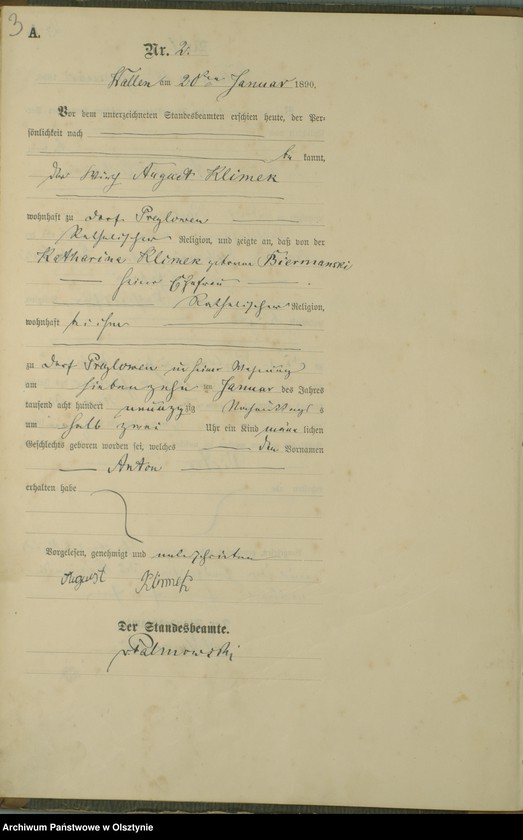 3
A.
Nr. 2.
Kallen am 20ten Januar 1890.
Vor dem unterzeichneten Standesbeamten erschien heute, der Per-
sönlichkeit nach
be kannt,
der Wirth August Klimek
wohnhaft zu Dorf Preylowen
Katholischer Religion, und zeigte an, daß von der
Katharina Klimek geborene Biermanski
seiner Ehefrau
Katholischer Religion,
wohnhaft bei ihm
zu Dorf Preylowen in seiner Wohnung
am siebenzehn ten Januar des Jahres
tausend acht hundert neunzig zig Nachmittags
um halb zwei Uhr ein Kind männ lichen
Geschlechts geboren worden sei, welches den Vornamen
Anton
erhalten habe
Vorgelesen, genehmigt und unterschrieben
August Klimek
Der Standesbeamte.
Palmowski
Archiwum Państwowe w Olsztynie